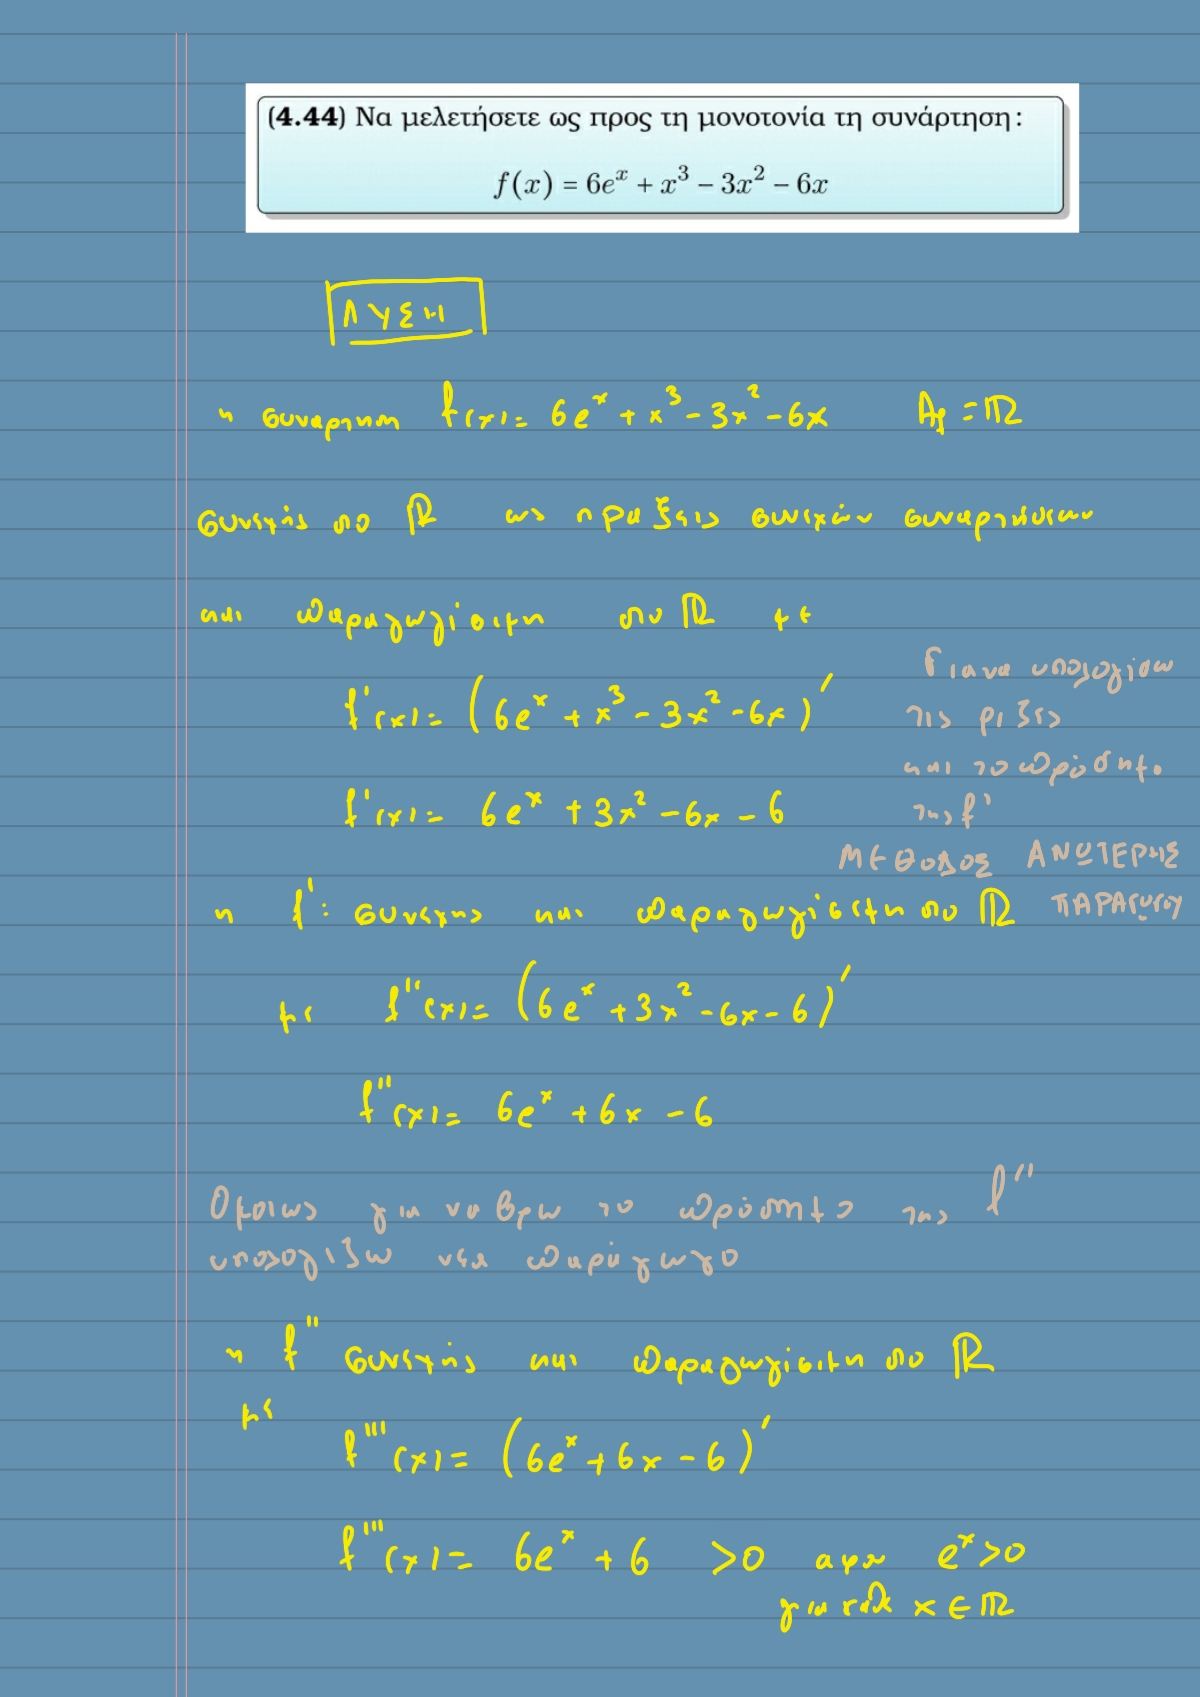 (4.44) Να μελετήσετε ως προς τη μονοτονία τη συνάρτηση:
f(x) = 6eˣ + x³ − 3x² − 6x
ΛΥΣΗ
η συναρτηση f(x) = 6eˣ + x³ − 3x² − 6x   A_f = ℝ
συνεχής στο ℝ ως πραξεις συνεχών συναρτήσεων
και παραγωγίσιμη στο ℝ με
f'(x) = (6eˣ + x³ − 3x² − 6x)'
Για να υπολογίσω
τις ριζες
και το πρόσημο
της f'
f'(x) = 6eˣ + 3x² − 6x − 6
ΜΕΘΟΔΟΣ ΑΝΩΤΕΡΗΣ
ΠΑΡΑΓΩΓΟΥ
η f': συνεχης και παραγωγίσιμη στο ℝ
με f''(x) = (6eˣ + 3x² − 6x − 6)'
f''(x) = 6eˣ + 6x − 6
Ομοιως για να βρω το πρόσημο της f''
υπολογιζω νέα παράγωγο
η f'' συνεχής και παραγωγίσιμη στο ℝ
με
f'''(x) = (6eˣ + 6x − 6)'
f'''(x) = 6eˣ + 6 > 0 αφου eˣ > 0
για καθε x ∈ ℝ